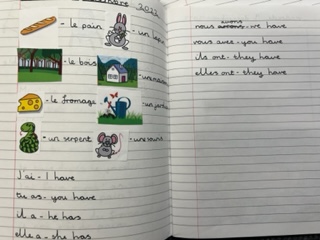 2022
- le pain
- un lapin
- le bois
- le fromage
- un serpent
- une souris
j'ai - I have
tu as - you have
il a - he has
elle a - she has
nous avons - we have
vous avez - you have
ils ont - they have
elles ont - they have